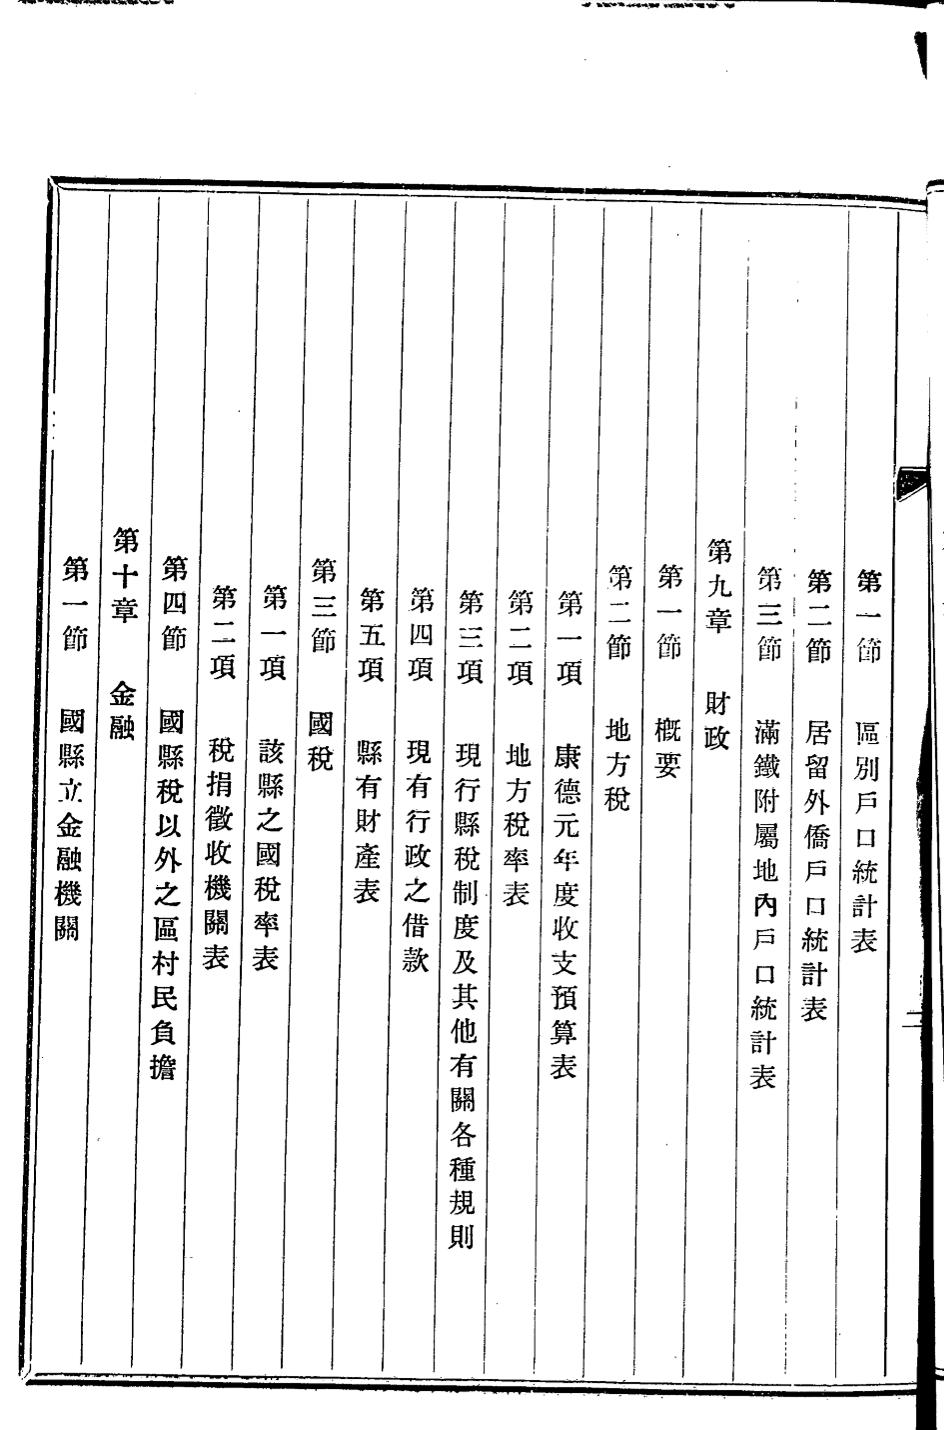 第一節　區別戶口統計表
第二節　居留外僑戶口統計表
第三節　滿鐵附屬地內戶口統計表
第九章　財政
第一節　概要
第二節　地方稅
第一項　康德元年度收支預算表
第二項　地方稅率表
第三項　現行縣稅制度及其他有關各種規則
第四項　現有行政之借款
第五項　縣有財產表
第三節　國稅
第一項　該縣之國稅率表
第二項　稅捐徵收機關表
第四節　國縣稅以外之區村民負擔
第十章　金融
第一節　國縣立金融機關